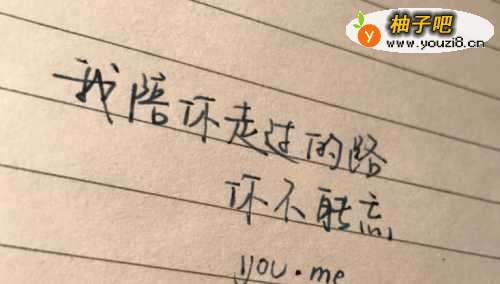 柚子吧
www.youzi8.cn
我陪你走过的路
你不能忘
you·me